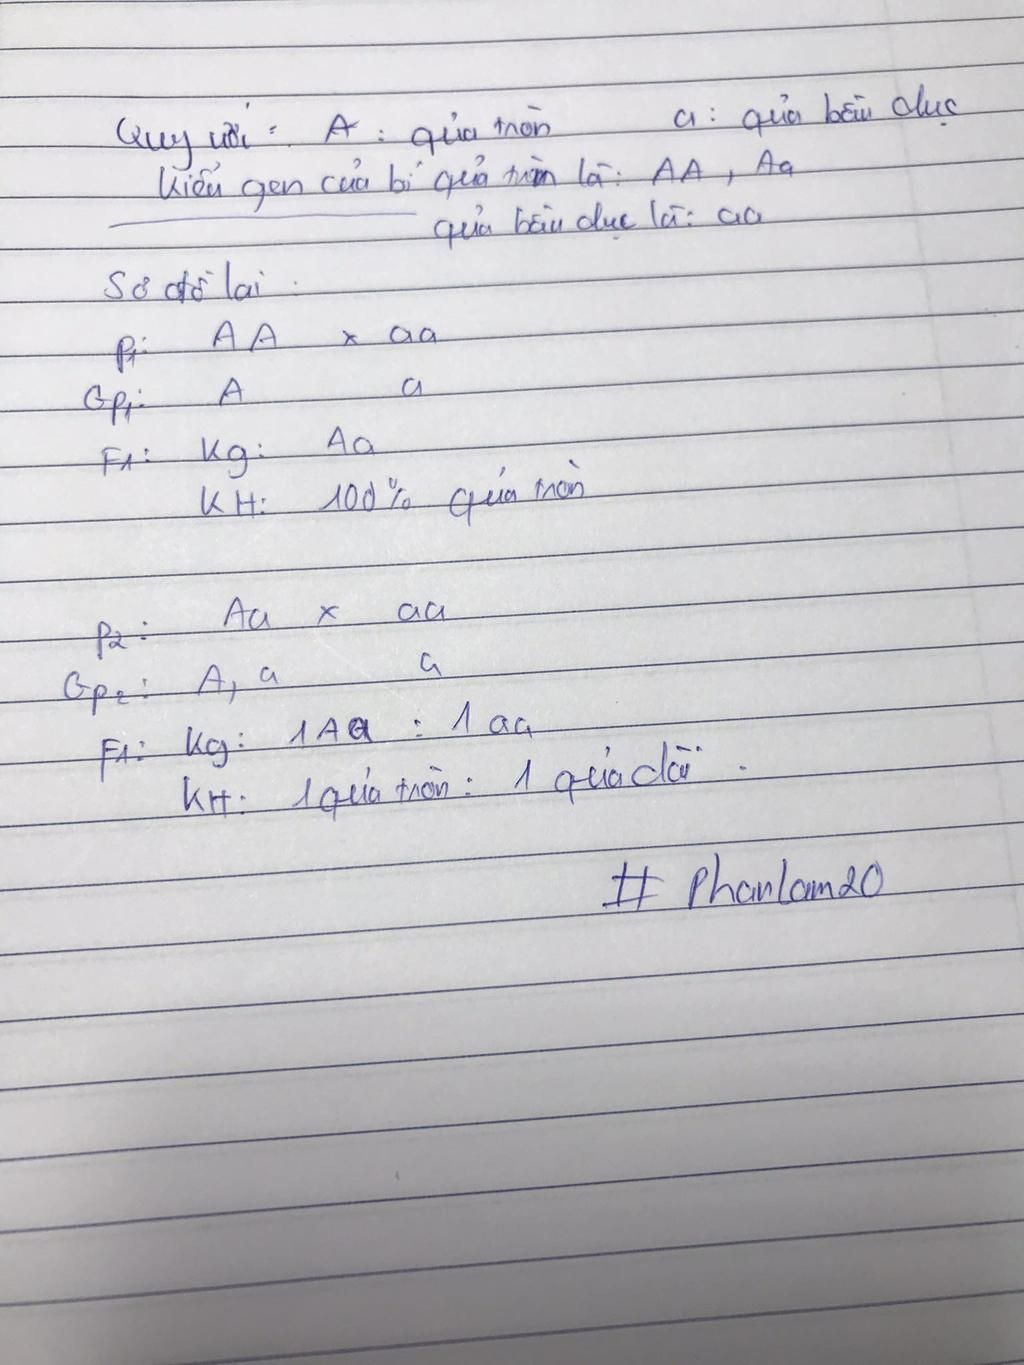 Quy ước: A: quả tròn a: quả bầu dục
Kiểu gen của bí quả tròn là: AA, Aa
quả bầu dục là: aa
Sơ đồ lai:
P1: AA x aa
Gp1: A a
F1: Kg: Aa
KH: 100% quả tròn
P2: Aa x aa
Gp2: A, a a
F1: Kg: 1Aa : 1aa
KH: 1 quả tròn : 1 quả dài.
# Phanlam20